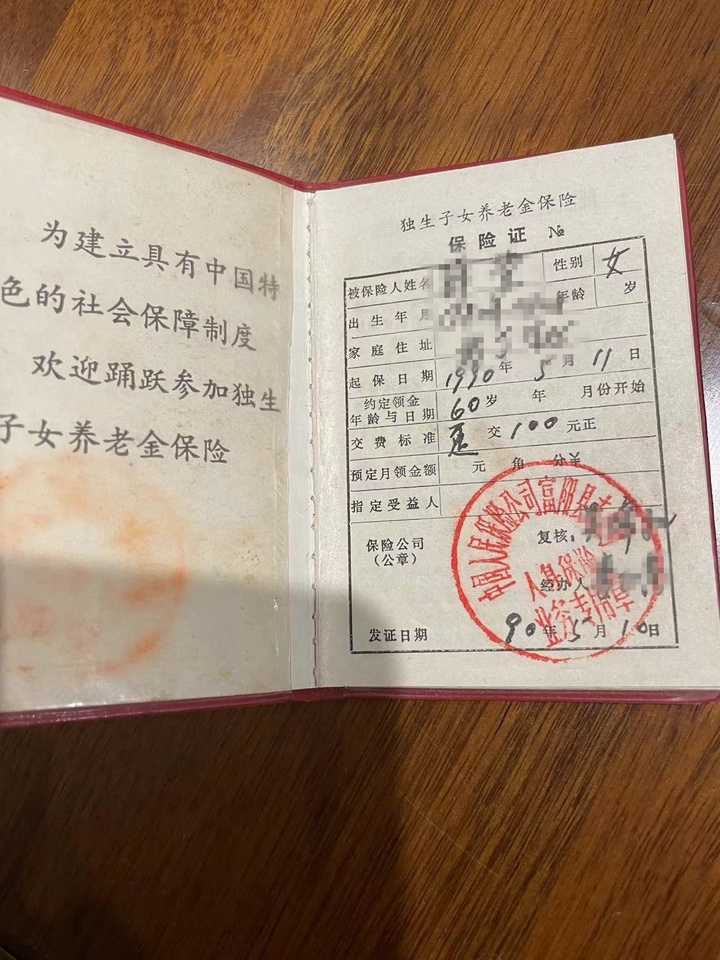 为建立具有中国特
色的社会保障制度
欢迎踊跃参加独生
子女养老金保险
独生子女养老金保险
保险证 №
被保险人姓名 性别 女
出生年月 年龄 岁
家庭住址
起保日期 1990年5月11日
约定领金年龄与日期 60岁 年 月份开始
交费标准 交100元正
预定月领金额 元 角 分
指定受益人
保险公司
(公章)
复核:
经办人
发证日期 90年5月10日
中国人民保险公司富阳县支公司
人身保险
业务专用章